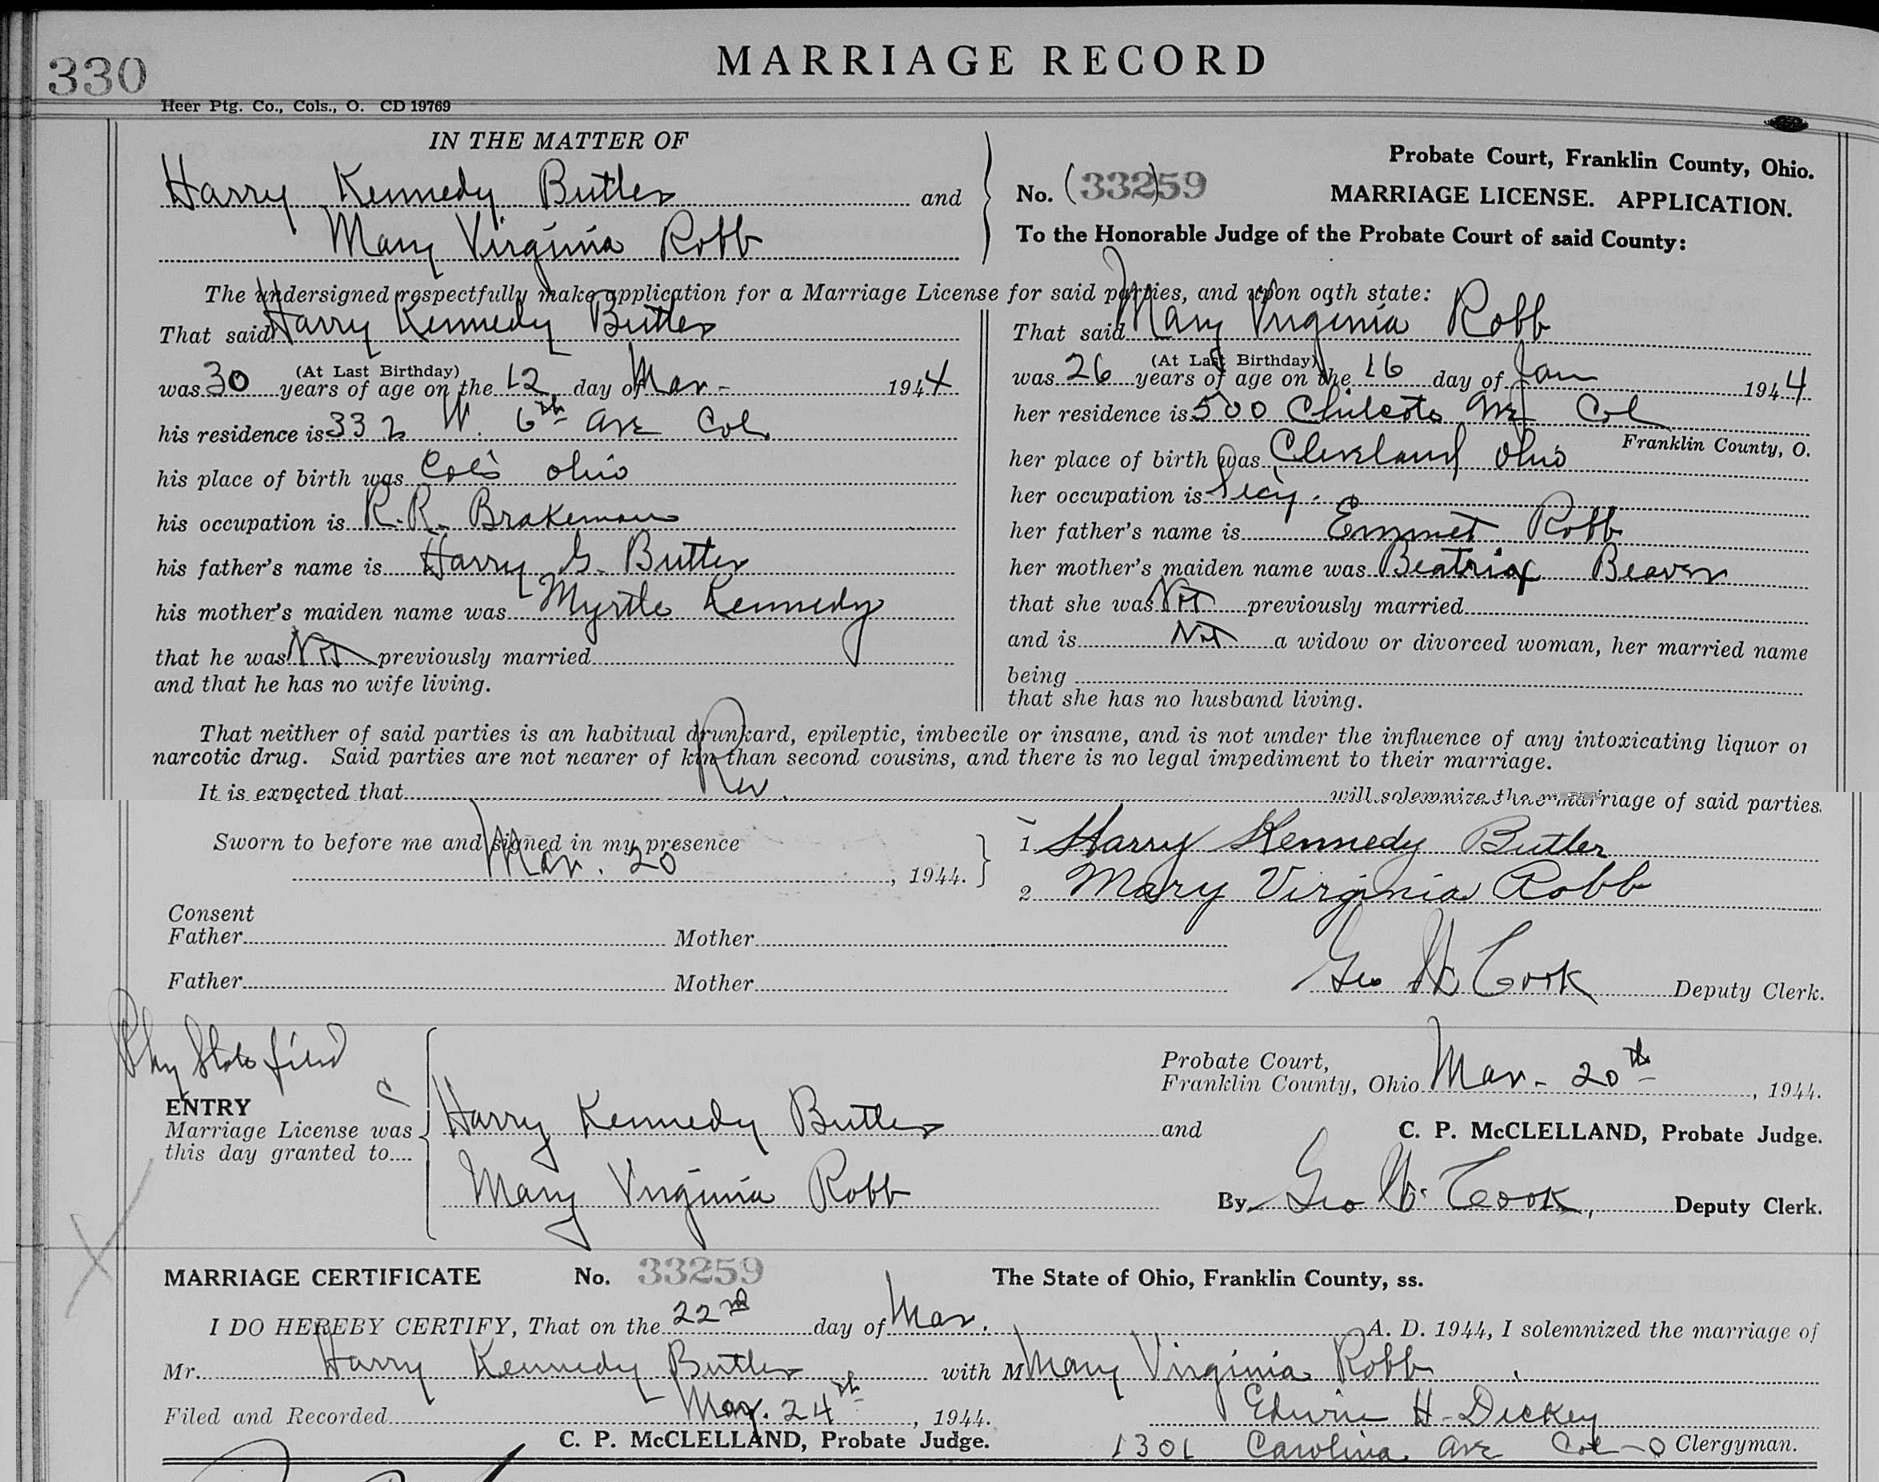 330
MARRIAGE RECORD
Heer Ptg. Co., Cols., O. CD 19769
IN THE MATTER OF
Harry Kennedy Butler and
Mary Virginia Robb
Probate Court, Franklin County, Ohio.
No. (33259) MARRIAGE LICENSE. APPLICATION.
To the Honorable Judge of the Probate Court of said County:
The undersigned respectfully make application for a Marriage License for said parties, and upon oath state:
That said Harry Kennedy Butler
was 30 years of age on the 12 day of Mar - 1944
(At Last Birthday)
his residence is 332 W. 6th Ave Col.
his place of birth was Col's Ohio
his occupation is R.R. Brakeman
his father's name is Harry G. Butler
his mother's maiden name was Myrtle Kennedy
that he was Not previously married
and that he has no wife living.
That said Mary Virginia Robb
(At Last Birthday)
was 26 years of age on the 16 day of Jan 1944
her residence is 500 Chilcote Ave Col
Franklin County, O.
her place of birth was Cleveland Ohio
her occupation is Secy.
her father's name is Emmet Robb
her mother's maiden name was Beatrix Beaver
that she was Not previously married
and is Not a widow or divorced woman, her married name
being
that she has no husband living.
That neither of said parties is an habitual drunkard, epileptic, imbecile or insane, and is not under the influence of any intoxicating liquor or
narcotic drug. Said parties are not nearer of kin than second cousins, and there is no legal impediment to their marriage.
It is expected that Rev. will solemnize the marriage of said parties.
Sworn to before me and signed in my presence
Mar. 20, 1944.
1 Harry Kennedy Butler
2 Mary Virginia Robb
Consent
Father Mother
Father Mother
Geo W Cook Deputy Clerk.
Phy State filed
ENTRY
Marriage License was
this day granted to....
Harry Kennedy Butler and
Mary Virginia Robb
Probate Court,
Franklin County, Ohio Mar. 20th, 1944.
C. P. McCLELLAND, Probate Judge.
By Geo W. Cook, Deputy Clerk.
MARRIAGE CERTIFICATE No. 33259 The State of Ohio, Franklin County, ss.
I DO HEREBY CERTIFY, That on the 22nd day of Mar. A. D. 1944, I solemnized the marriage of
Mr. Harry Kennedy Butler with M Mary Virginia Robb
Filed and Recorded Mar. 24th, 1944. Edwin H. Dickey
C. P. McCLELLAND, Probate Judge. 1301 Carolina Ave Col-O Clergyman.